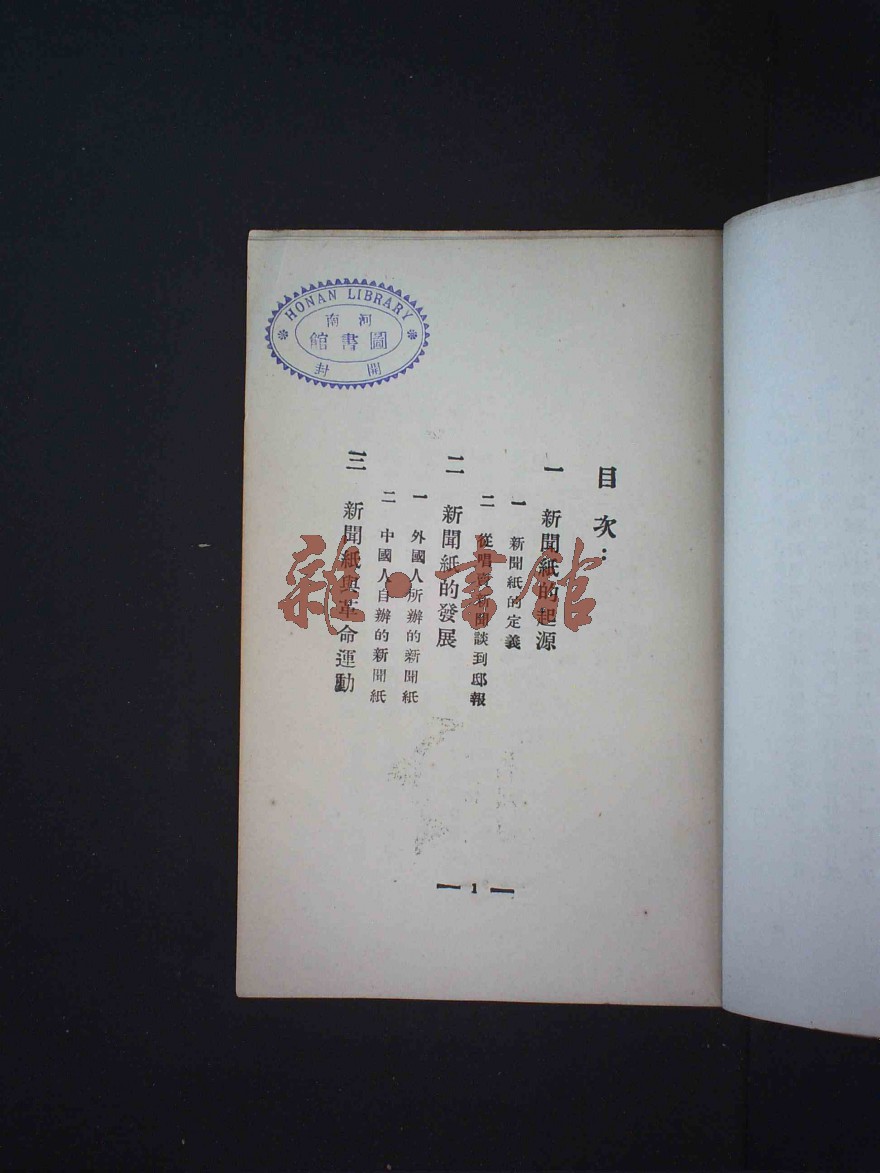 HONAN LIBRARY
河南
圖書館
開封
目次：
一 新聞紙的起源
一 新聞紙的定義
二 從唱賣新聞談到邸報
二 新聞紙的發展
一 外國人所辦的新聞紙
二 中國人自辦的新聞紙
三 新聞紙與革命運動
1
雜·書館